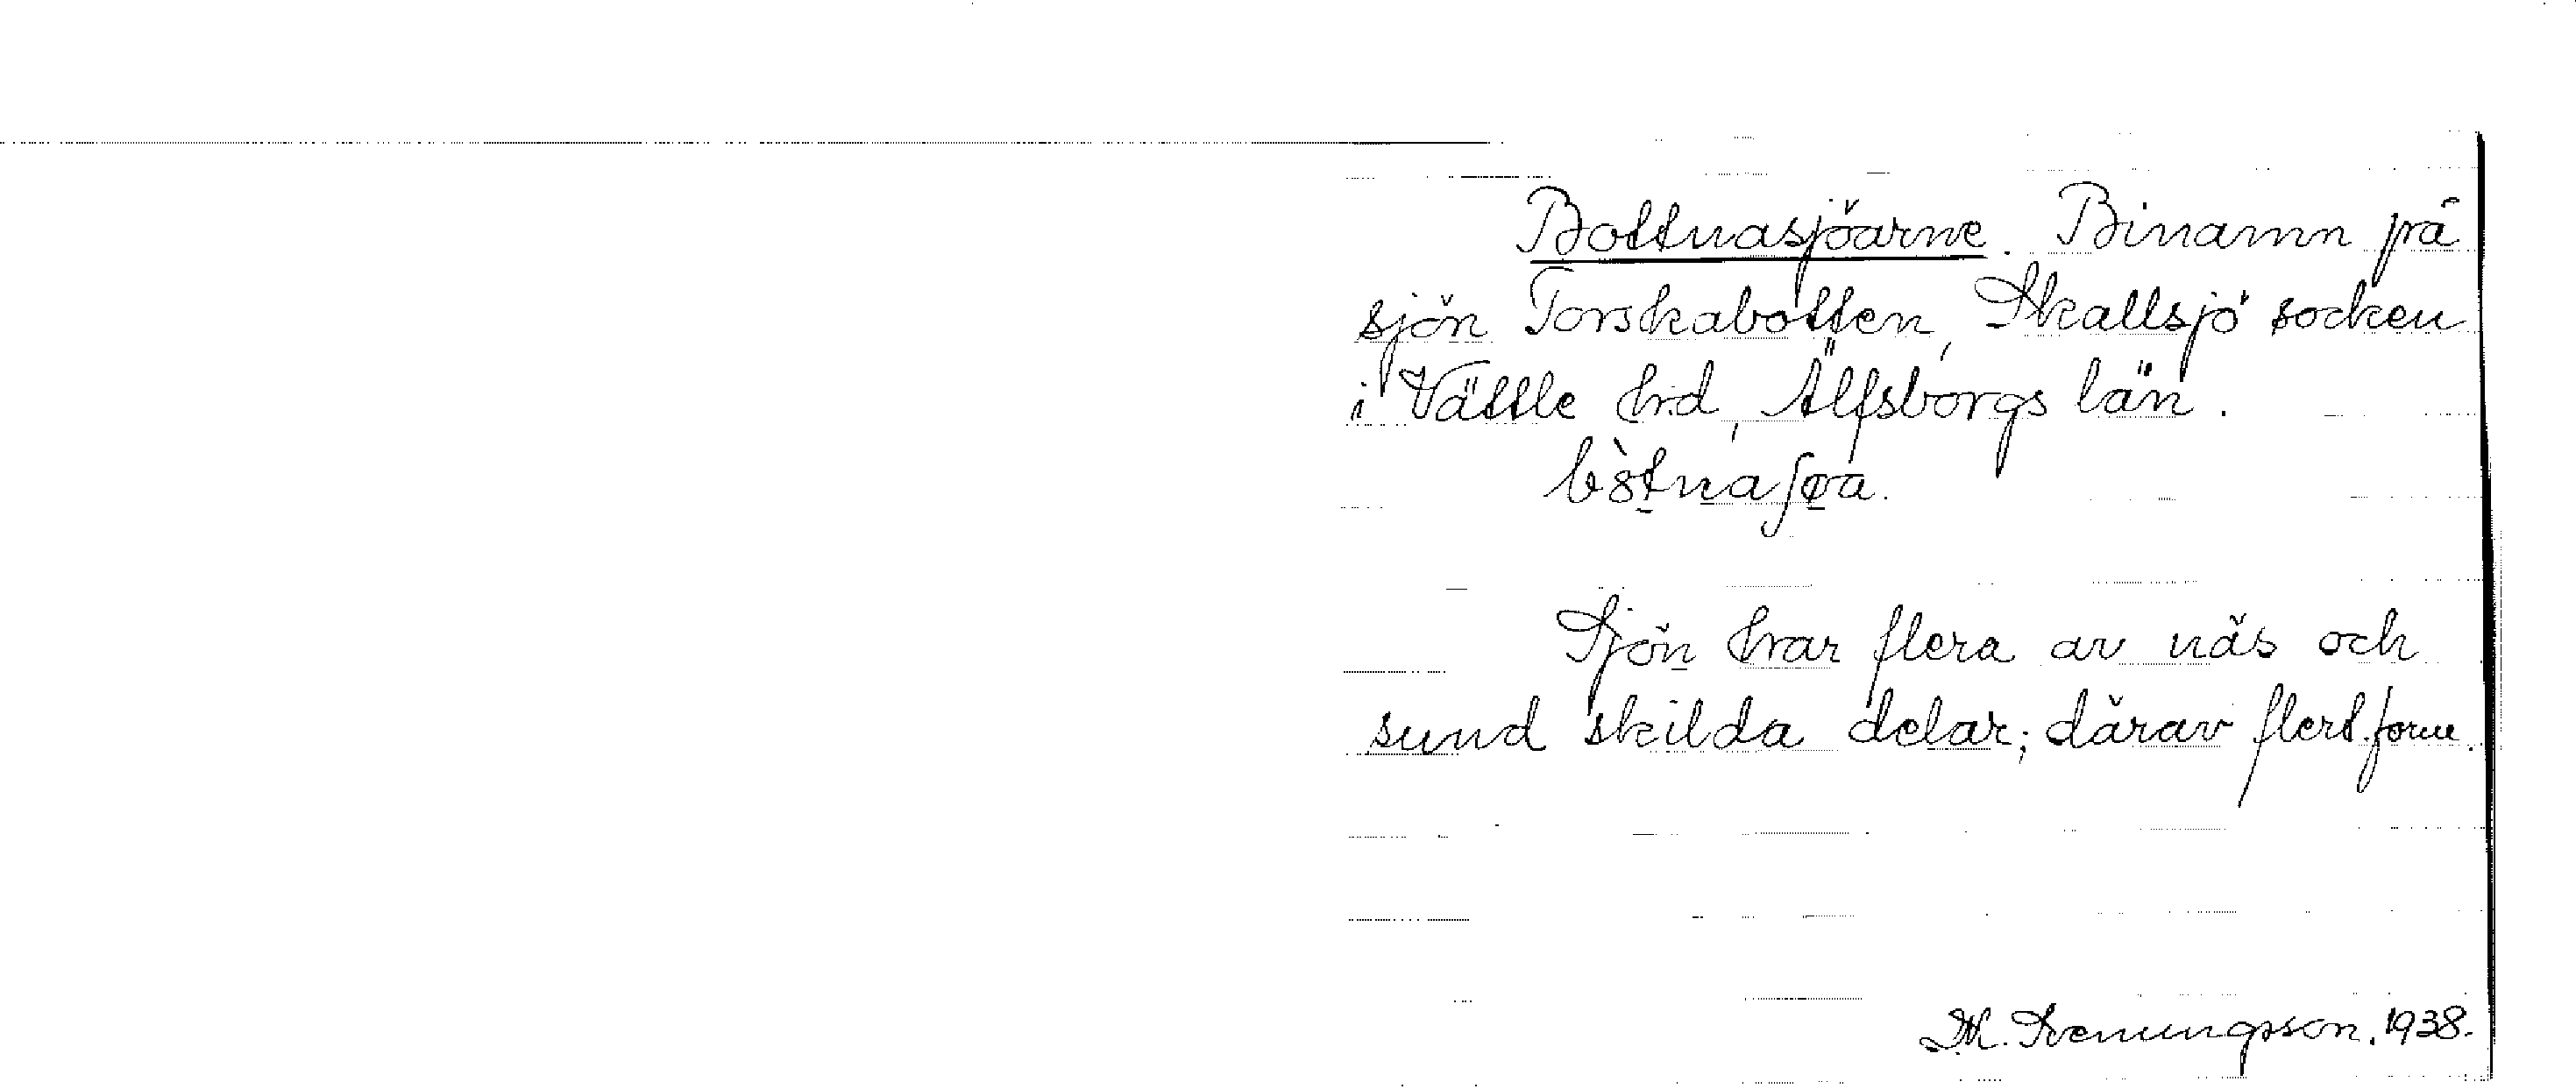 Bottnasjöarne. Binamn på
sjön Torskabotten, Skallsjö socken
i Vättle hd, Älfsborgs län.
Sjön har flera av näs och
sund skilda delar; därav flert.form.
M. Svenungsson. 1938.